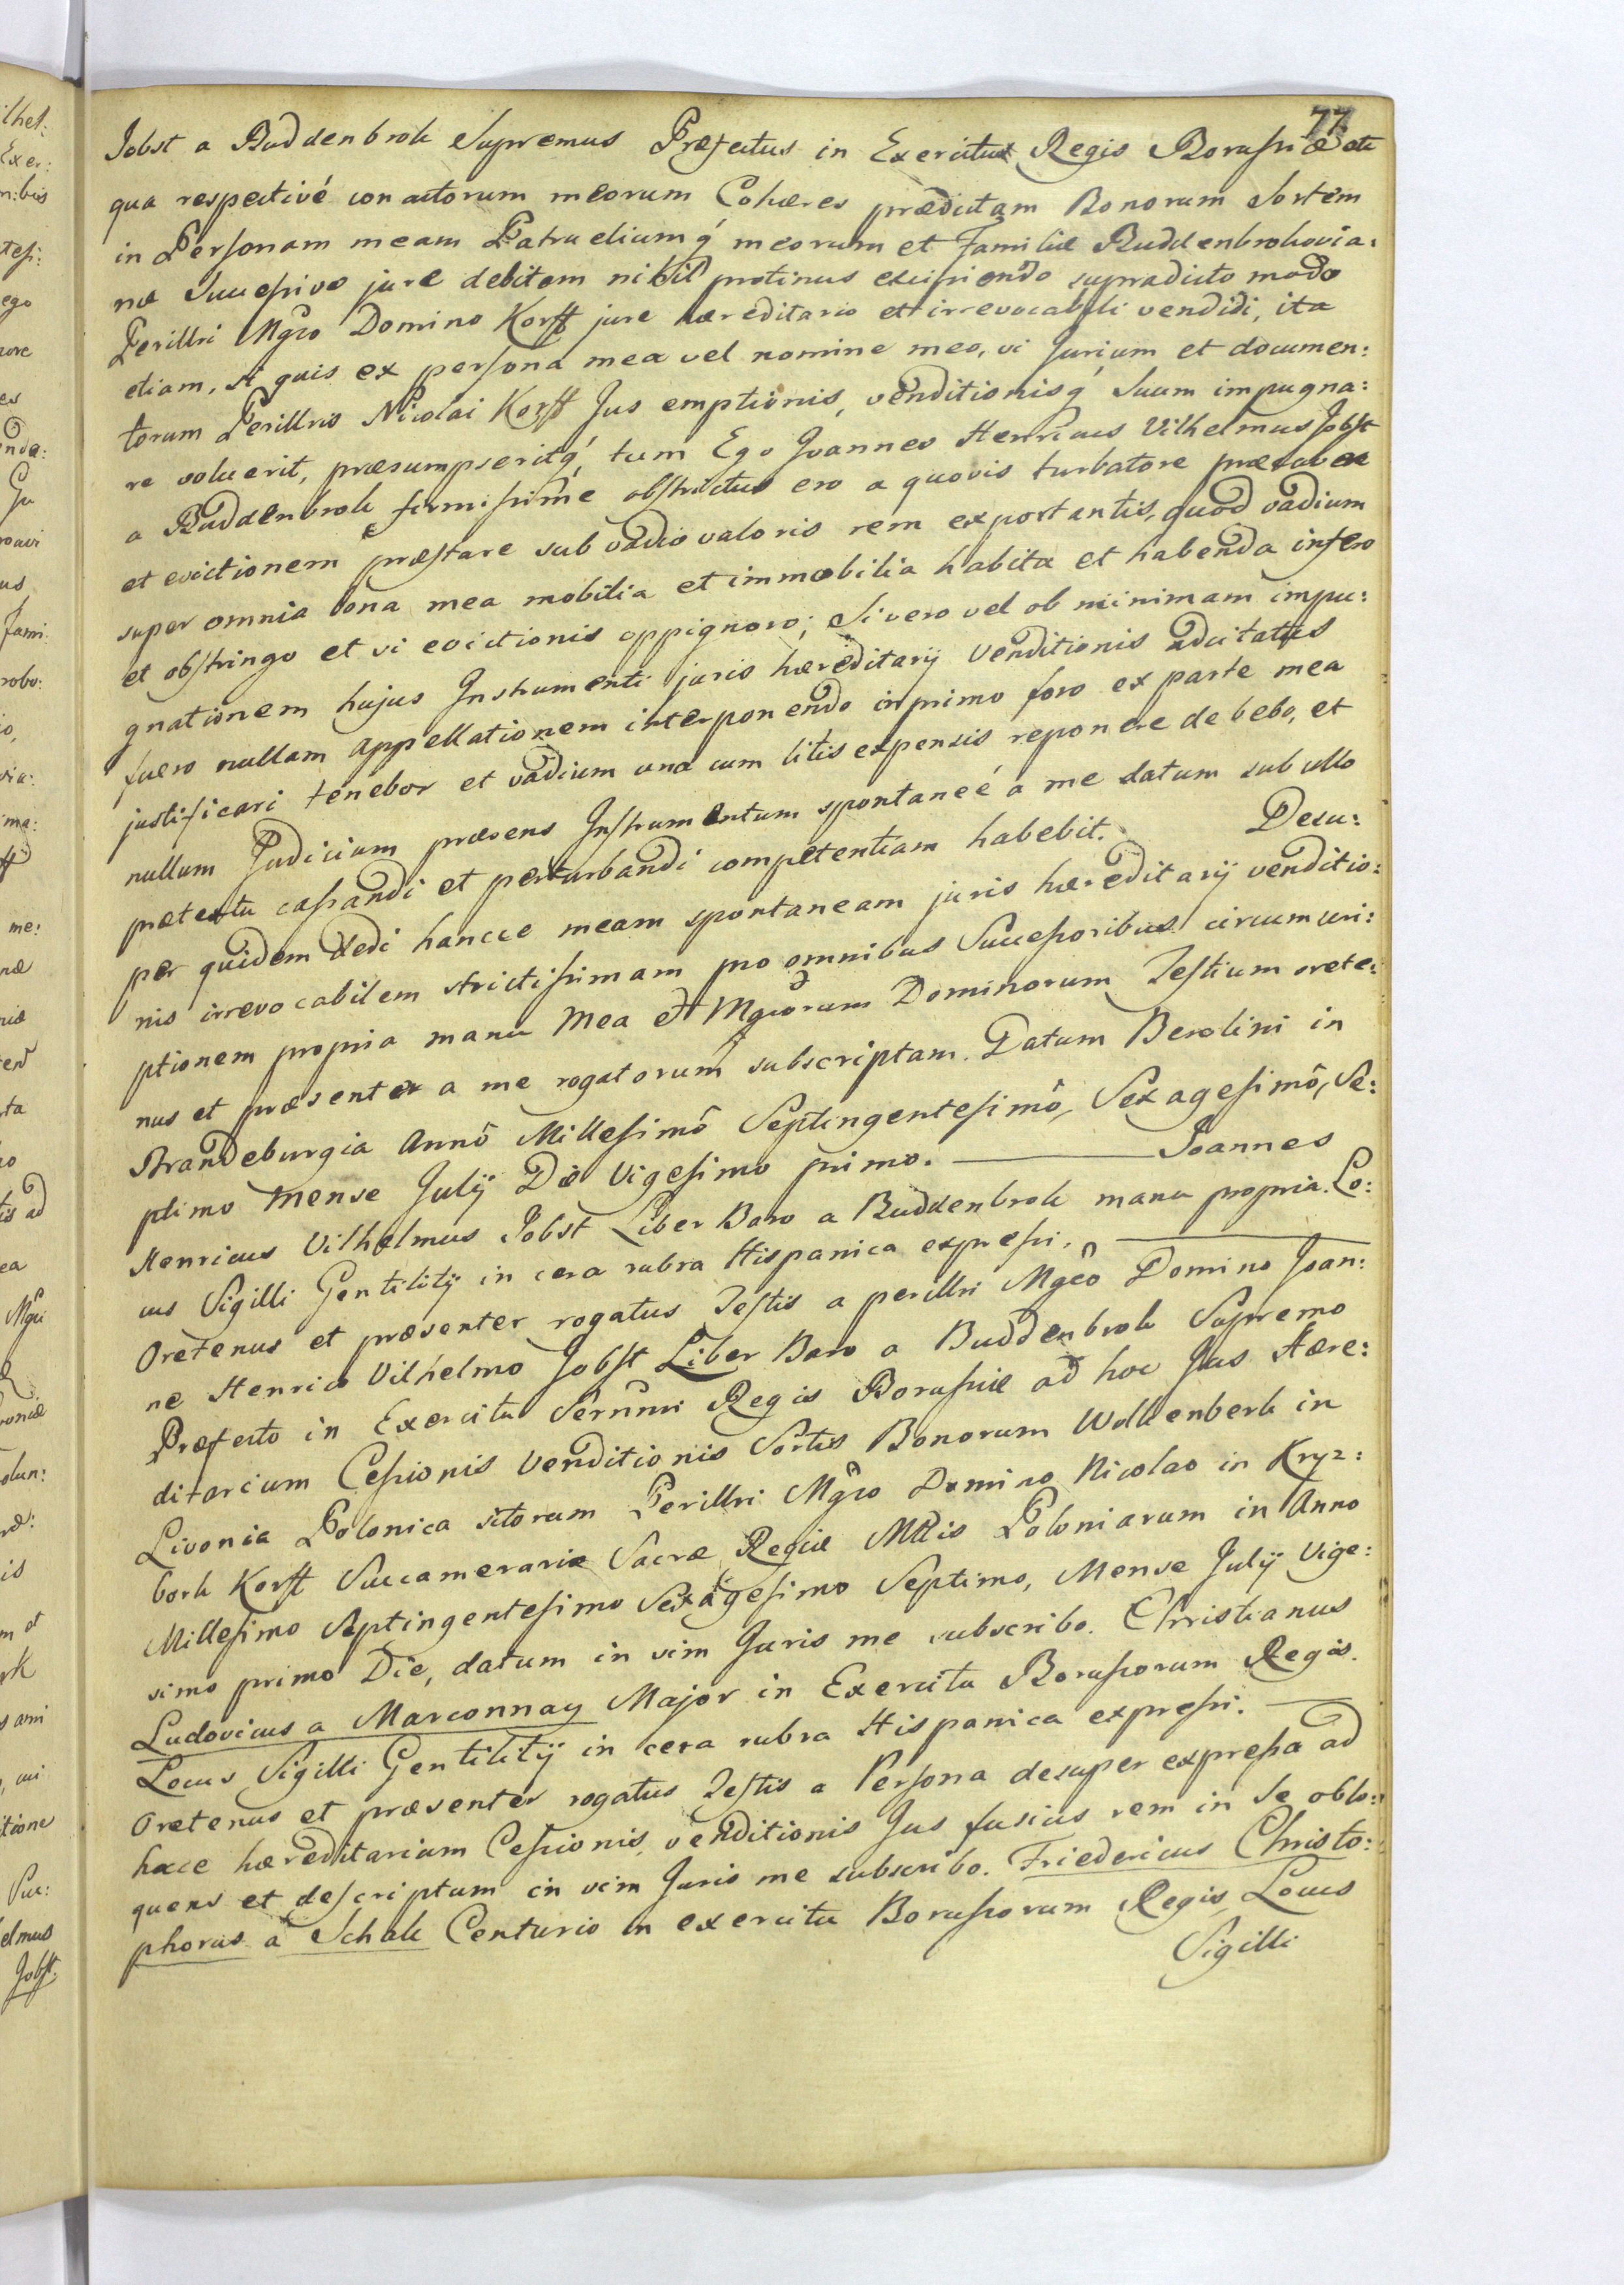 77
Jobst a Buddenbrok Supremus Præfectus in Exercitu Regis Borussiæ etc
qua respectivé conactorum meorum Cohæres prædictam Bonorum Sortem
in Personam meam Patrueliumq́ meorum et Familiæ Buddenbrokovia:
næ Successivo jure debitam nihil protinus excipiendo supradicto modo
Perillri Mgco Domino Korff jure hæreditario et irrevocabili vendidi, ita
etiam, si quis ex persona mea vel nomine meo, vi Jurium et documen:
torum Perillris Nicolai Korff Jus emptionis, venditionisq́ Suum impugna:
re voluerit, præsumpseritq́, tum Ego Joannes Henricus Vilhelmus Jobst
a Buddenbrok firmissime obstrictus ero a quovis turbatore præcavere
et evictionem præstare sub vadio valoris rem exportantis, quod vadium
super omnia bona mea mobilia et immobilia habita et habenda infero
et obstringo et vi evictionis oppignoro; Si vero vel ob minimam impu:
gnationem hujus Instrumenti juris hæreditarij venditionis adcitatus
fuero nullam appellationem interponendo in primo foro ex parte mea
justificari tenebor et vadium una cum litis expensis reponere debebo, et
nullum Judicium præsens Instrumentum spontaneé á me datum sub ullo
prætextu cassandi et perturbandi competentiam habebit. Desu:
per quidem dedi hancce meam spontaneam juris hæreditarij venditio:
nis irrevocabilem strictissimam pro omnibus Successoribus circumscri:
ptionem propria manu Mea et Mgcorum Dominorum Testium orete:
nus et præsenter a me rogatorum subscriptam. Datum Berolini in
Brandeburgia Annô Millesimô Septingentesimô, Sexagesimô, Se:
ptimo Mense Julij Die Vigesimo primo. Joannes
Henricus Vilhelmus Jobst Liber Baro a Buddenbrok manu propria. Lo:
cus Sigilli Gentilitij in cera rubra Hispanica expressi.
Oretenus et præsenter rogatus Testis a perillri Mgco Domino Joan:
ne Henrico Vilhelmo Jobst Liber Baro a Buddenbrok Supremo
Præfecto in Exercitu Sernmi Regis Borussiæ ad hoc Jus Hære:
ditarium Cessionis Venditionis Sortis Bonorum Wolkenberk in
Livonia Polonica sitorum Perillri Mgco Domino Nicolao in Kryz:
bork Korff Succamerario Sacræ Regiæ Mttis Poloniarum in Anno
Millesimo Septingentesimo Sexagesimo Septimo, Mense Julij Vige:
simo primo Die, datum in vim Juris me subscribo. Christianus
Ludovicus a Marconnay Major in Exercitu Borussorum Regis.
Locus Sigilli Gentilitij in cera rubra Hispanica expressi.
Oretenus et præsenter rogatus Testis a Persona desuper expressa ad
hocce hæreditarium Cessionis, venditionis Jus fusius rem in se oblo:
quens et descriptum in vim Juris me subscribo. Friedericus Christo:
phorus a Schak Centurio in exercitu Borussorum Regis, Locus
Sigilli